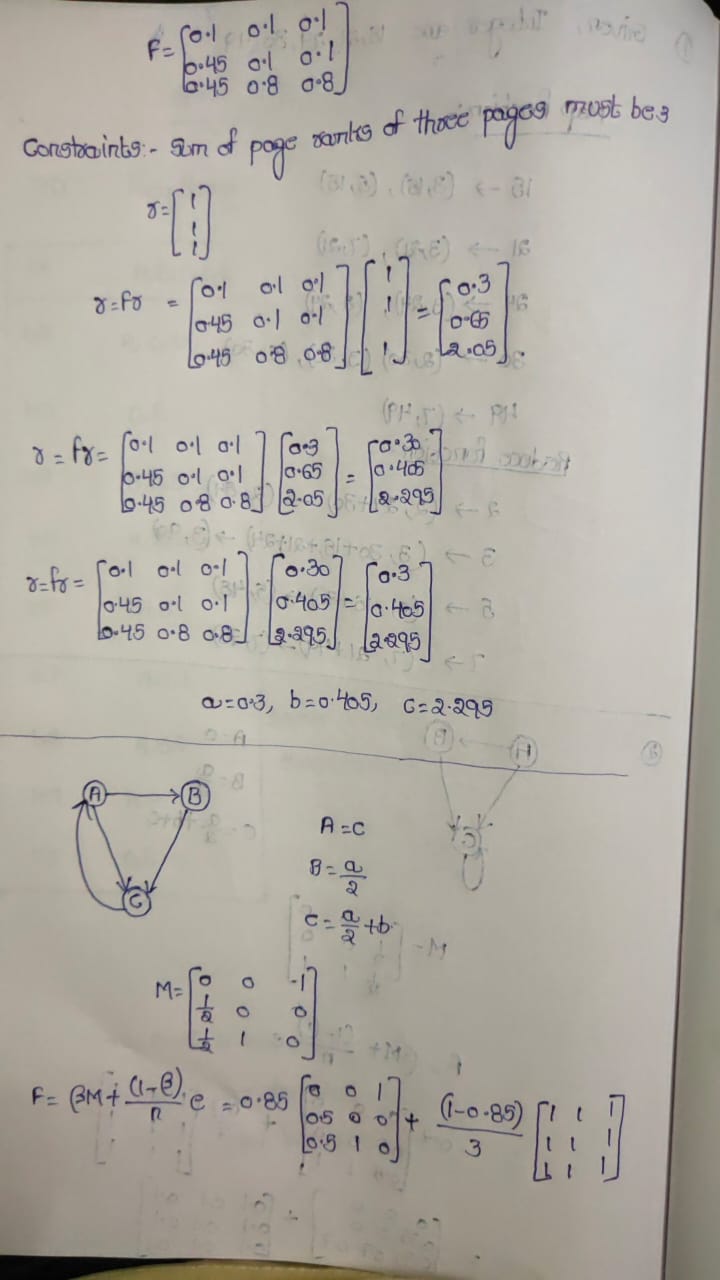 F= [0.1 0.1 0.1
0.45 0.1 0.1
0.45 0.8 0.8]
Constraints:- Sum of page ranks of three pages must be 3
r= [1
1
1]
r=Fr = [0.1 0.1 0.1
0.45 0.1 0.1
0.45 0.8 0.8] [1
1
1] = [0.3
0.65
2.05].
r = fr= [0.1 0.1 0.1
0.45 0.1 0.1
0.45 0.8 0.8] [0.3
0.65
2.05] = [0.30
0.405
2.295]
r=fr = [0.1 0.1 0.1
0.45 0.1 0.1
0.45 0.8 0.8] [0.30
0.405
2.295] = [0.3
0.405
2.295]
a=0.3, b=0.405, c=2.295
A B
C
A=C
B= a/2
c= a/2 +b
M= [0 0 1
1/2 0 0
1/2 1 0]
F= βM+ (1-β)/n e = 0.85 [0 0 1
0.5 0 0
0.5 1 0] + (1-0.85)/3 [1 1 1
1 1 1
1 1 1]